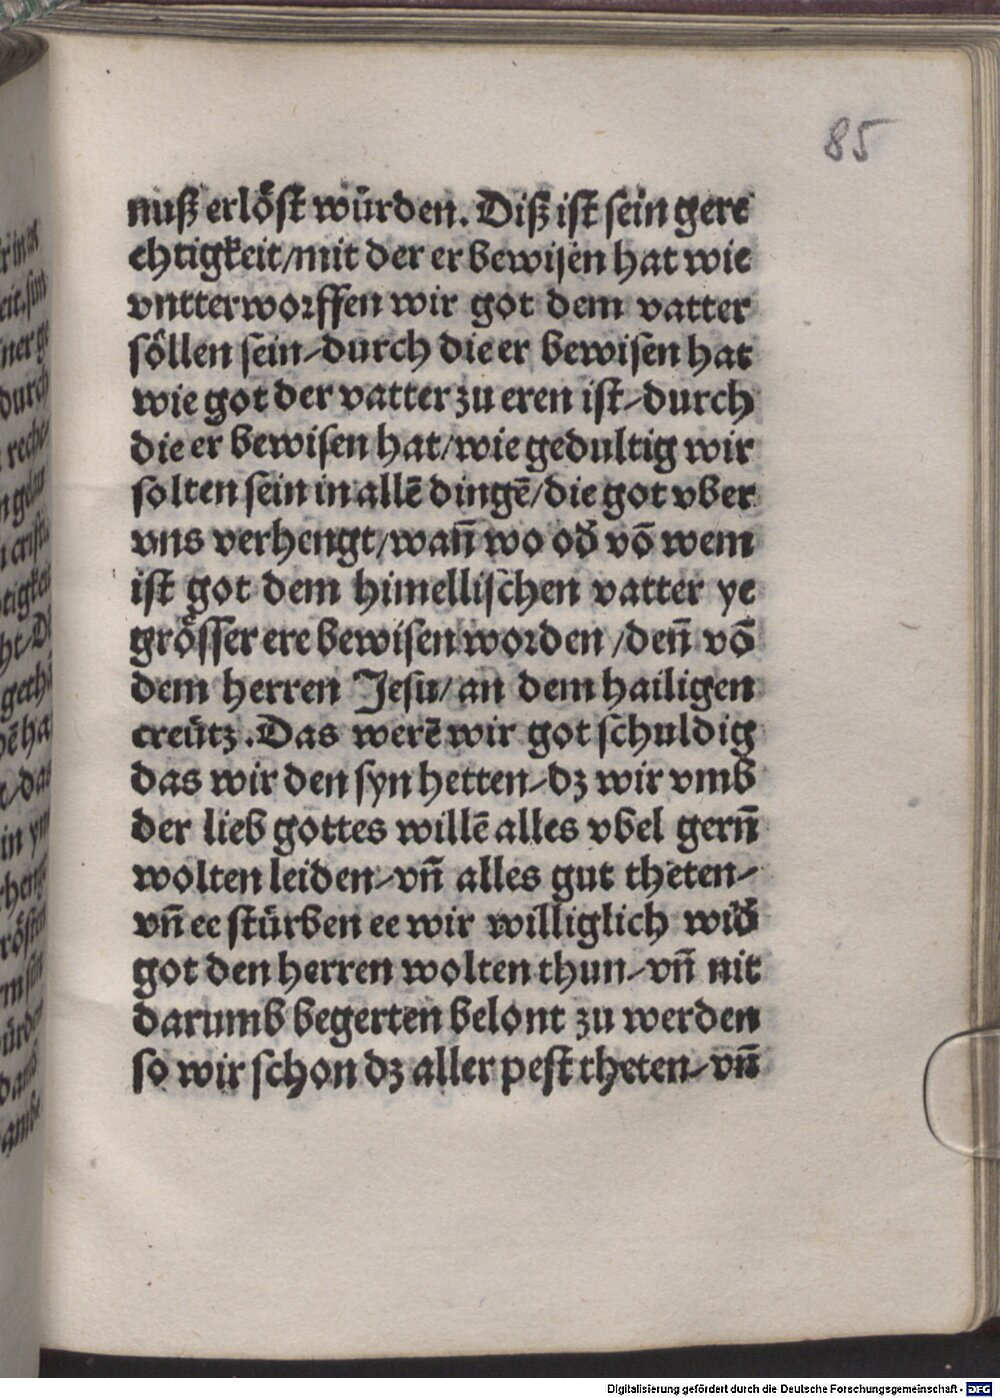 85
nuß erlöst würden. Diß ist sein gere
chtigkeit/mit der er bewisen hat wie
vntterworffen wir got dem vatter
söllen sein-durch die er bewisen hat
wie got der vatter zu eren ist-durch
die er bewisen hat/wie gedultig wir
solten sein in allē dingē/die got vber
vns verhengt/wañ wo od̕ vō wem
ist got dem himellischen vatter ye
grösser ere bewisen worden/deñ vō
dem herren Jesu/an dem hailigen
creütz. Das werē wir got schuldig
das wir den syn hetten-dz wir vmb
der lieb gottes willē alles vbel gerñ
wolten leiden-vñ alles gut theten-
vñ ee stürben ee wir williglich wid̕
got den herren wolten thun-vñ nit
darumb begerten belont zu werden
so wir schon dz aller pest theten-vñ
Digitalisierung gefördert durch die Deutsche Forschungsgemeinschaft - DFG